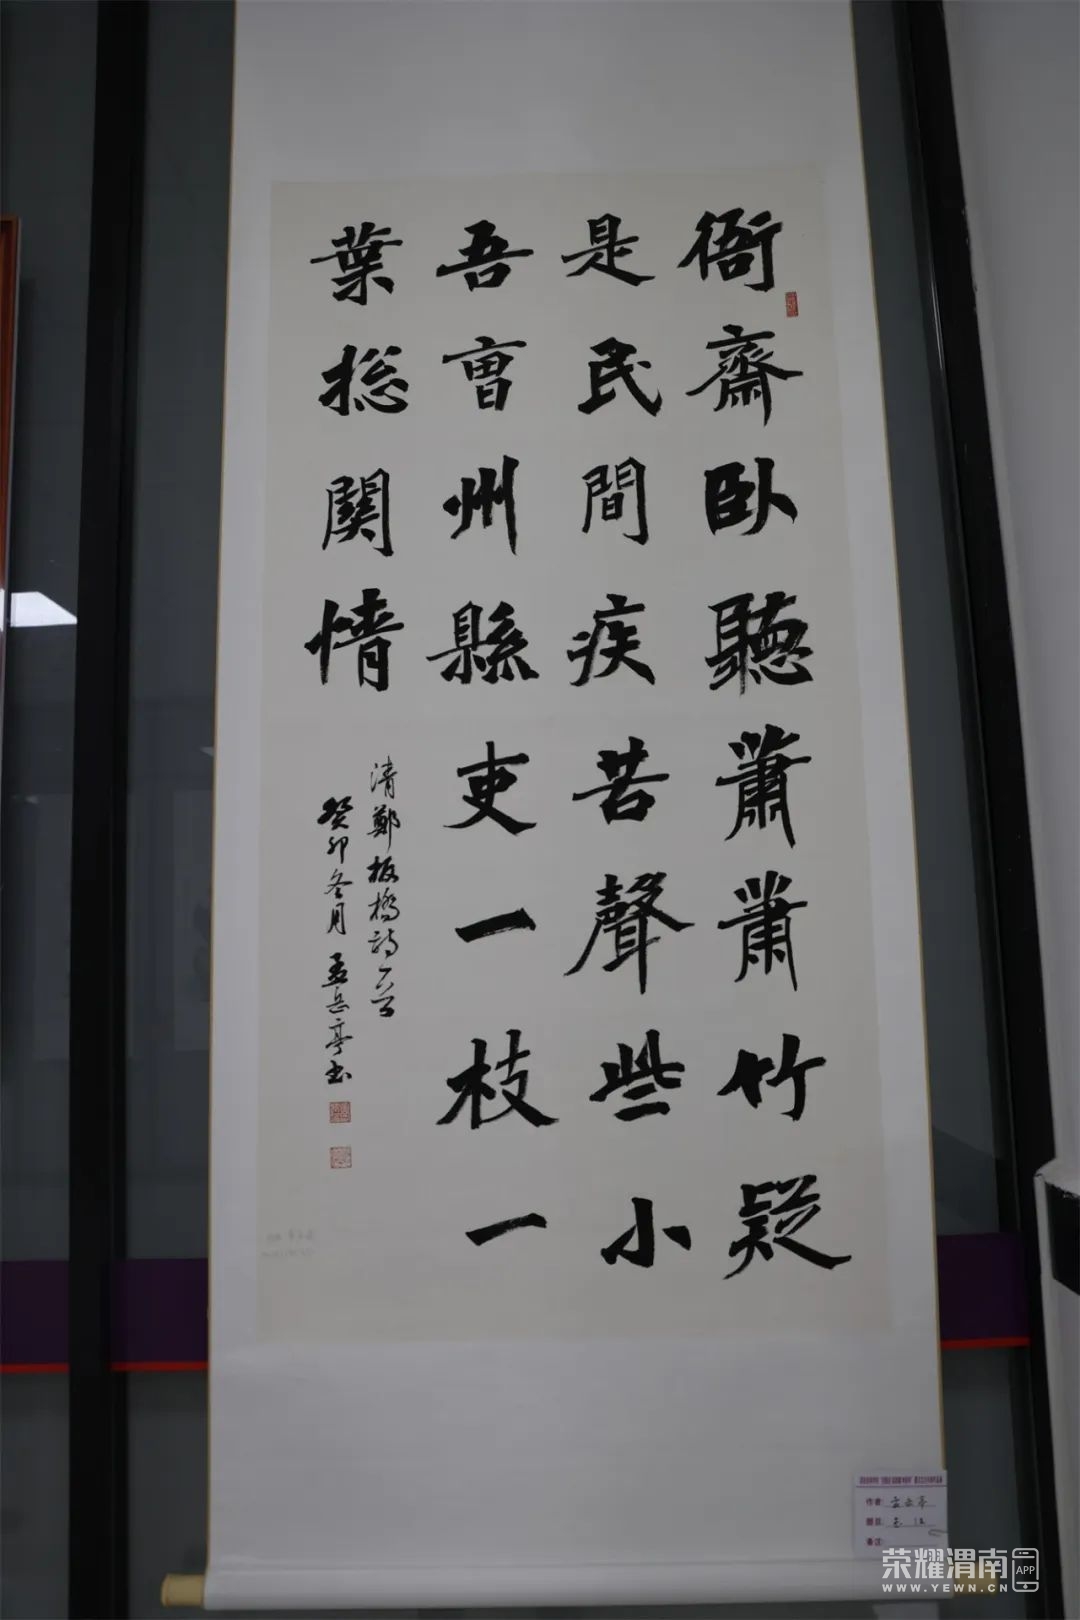 衙齋臥聽蕭蕭竹疑
是民間疾苦聲些小
吾曹州縣吏一枝一
葉總關情
清鄭板橋詩一首
癸卯冬月孟岳亭書
作者: 孟岳亭
题目: 书法
备注:
荣耀渭南APP
WWW.YEWN.CN